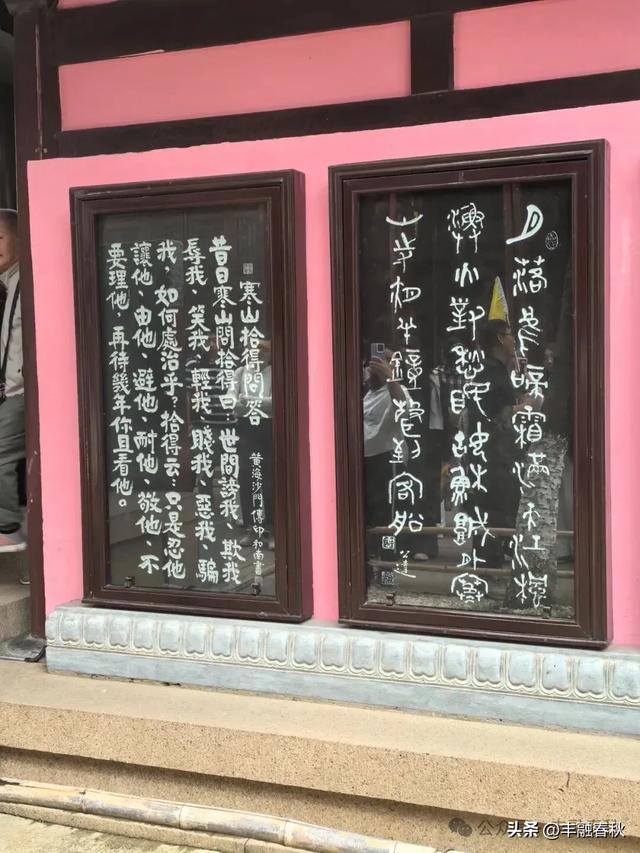 月落烏啼霜滿天江楓
漁火對愁眠姑蘇城外寒
山寺夜半鐘聲到客船
寒山拾得問答
黃海沙門傳印和南書
昔日寒山問拾得曰：世間謗我、欺我
辱我、笑我、輕我、賤我、惡我、騙
我、如何處治乎？拾得云：只是忍他
讓他、由他、避他、耐他、敬他、不
要理他、再待幾年你且看他。
头条 @丰融春秋